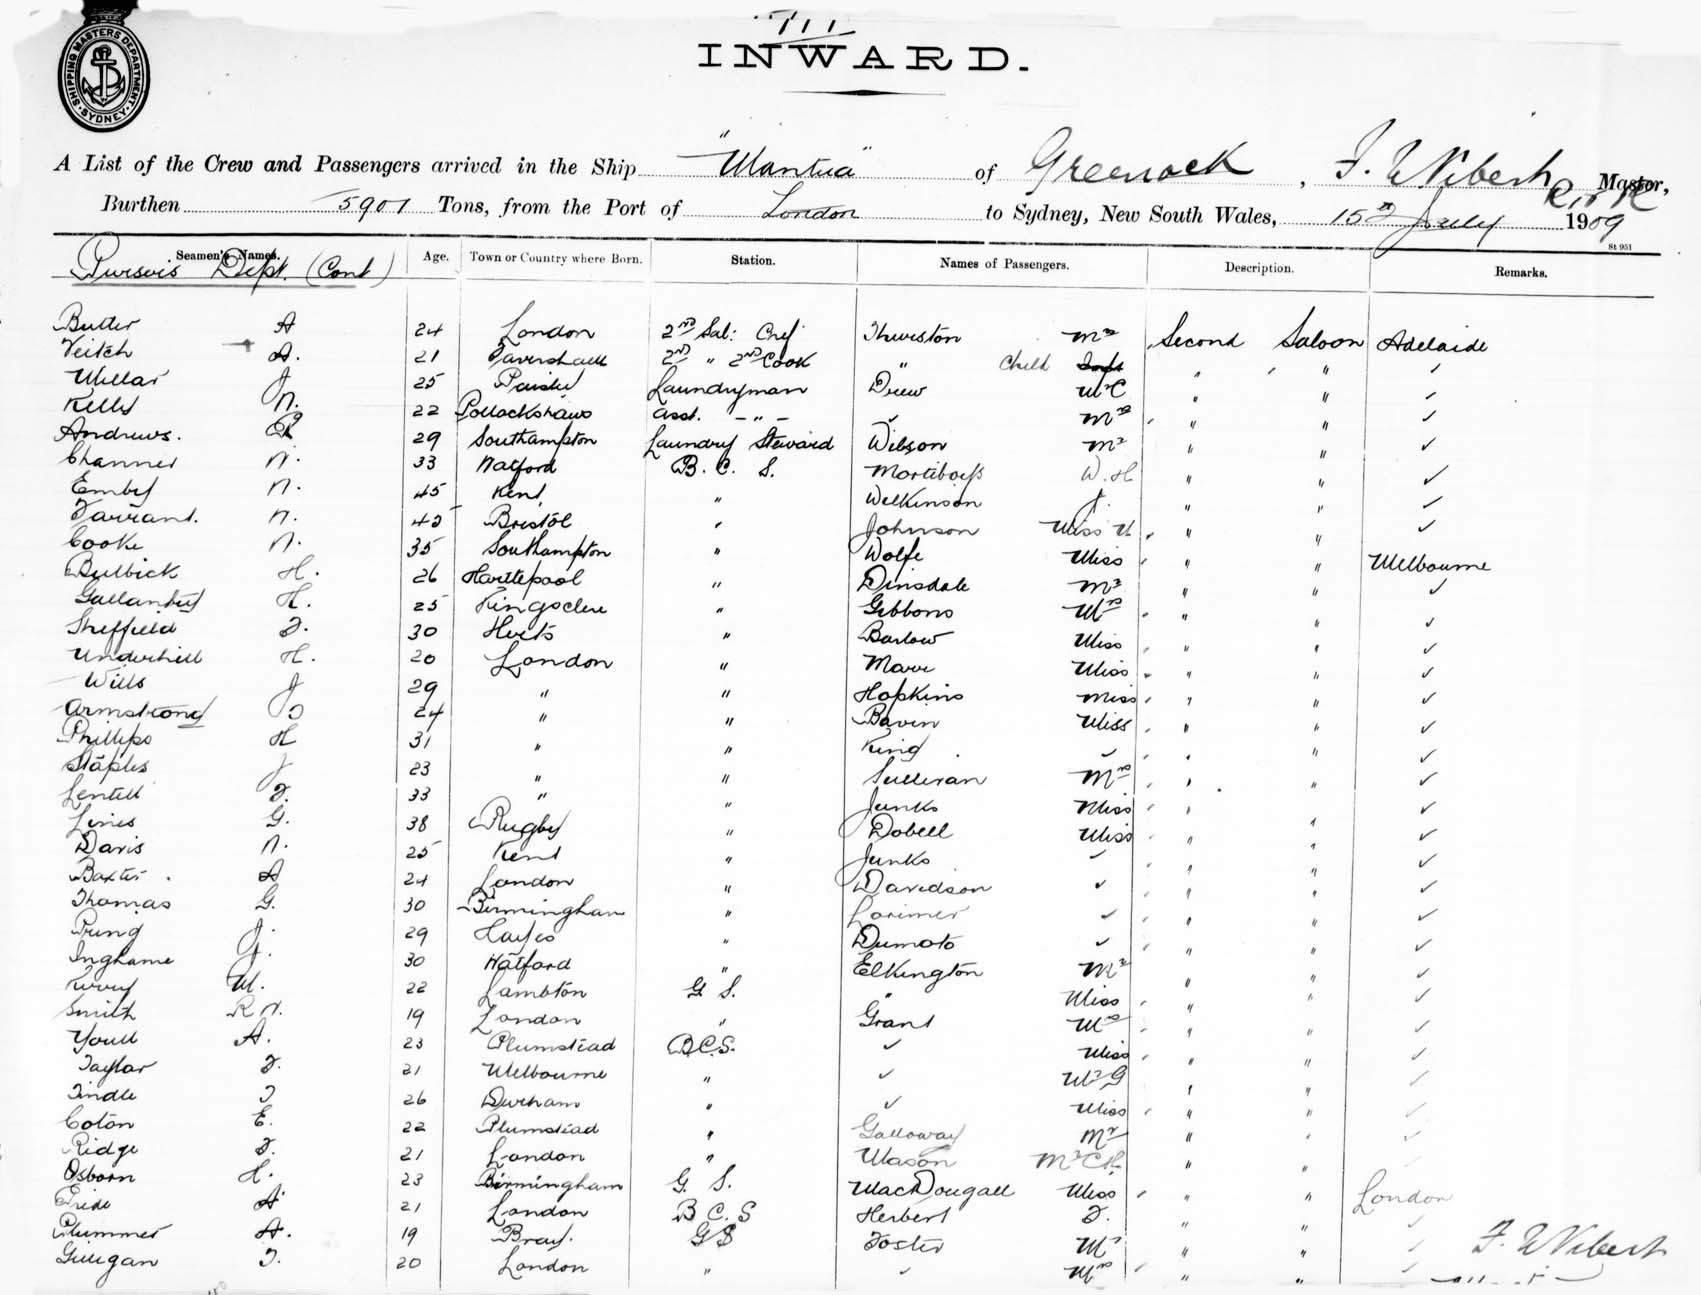 111
INWARD.
SHIPPING MASTERS DEPARTMENT. SYDNEY
A List of the Crew and Passengers arrived in the Ship "Mantua" of Greenock, F. W Vibert R.N.R Master,
Burthen 5901 Tons, from the Port of London to Sydney, New South Wales, 15th July 1909
St 951
Seamen's Names. Age. Town or Country where Born. Station. Names of Passengers. Description. Remarks.
Pursers Dept. (Cont)
Butler A 24 London 2ND Sal: Chef Thurston Mrs Second Saloon Adelaide
Veitch A. 21 2ND " 2ND Cook " Child " "
Millar J 25 Paisley Laundryman Drew W C " "
Kelly W. 22 Pollockshaws Asst. - " - Mrs " "
Andrews. 29 Southampton Laundry Steward Wilson Mr " "
Channer W. 33 Watford B. C. S. Mortiboys W. H " "
Embly W. 45 Kent " Wilkinson J. " "
Tarrant. W. 45 Bristol " Johnson Miss M " "
Cooke W. 35 Southampton " Wolfe Miss " " Melbourne
Bulbick H. 26 Hartlepool " Dinsdale Mr " "
Gallantry H. 25 Kingsclere " Gibbons Mrs " "
Sheffield F. 30 Herts " Barlow Miss " "
Underhill H. 20 London " Marr Miss " "
Wills J 29 " " Hopkins Miss " "
Armstrong 24 " " Bavin Miss " "
Phillips H 31 " " King " "
Staples J 23 " " Sullivan Mrs " "
Lentell F. 33 " " Junks Miss " "
Lines G. 38 Rugby " Dobell Miss " "
Davis W. 25 Kent " Junks " "
Baxter. A 24 London " Davidson " "
Thomas G. 30 Birmingham " Lorimer " "
Pung J. 29 Hayes " Dumoto " "
Inghame J. 30 Watford " Elkington Mr " "
M. 22 Lambton G S. " Miss " "
Smith R W. 19 London " Grant Mrs " "
Youll A. 23 Plumstead B.C.S. Miss " "
Taylor F. 21 Melbourne " Mr G " "
Tindle T 26 Durham " Miss " "
Coton E. 22 Plumstead " Galloway Mr " "
Ridge F. 21 London " Mason " "
Osborn H. 23 Birmingham G. S. MacDougall Miss " " London
Pride A 21 London B C. S Herbert F. " "
Plummer A. 19 Bray. G S Foster Mr " "
Gilligan T. 20 London " Mrs " "
F. W Vibert